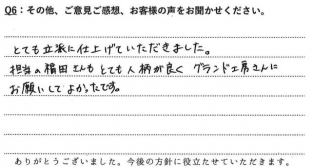 Q6：その他、ご意見ご感想、お客様の声をお聞かせください。
とても立派に仕上げていただきました。
担当の稲田さんもとても人柄が良く グランド工房さんに
お願いしてよかったです。
ありがとうございました。今後の方針に役立たせていただきます。